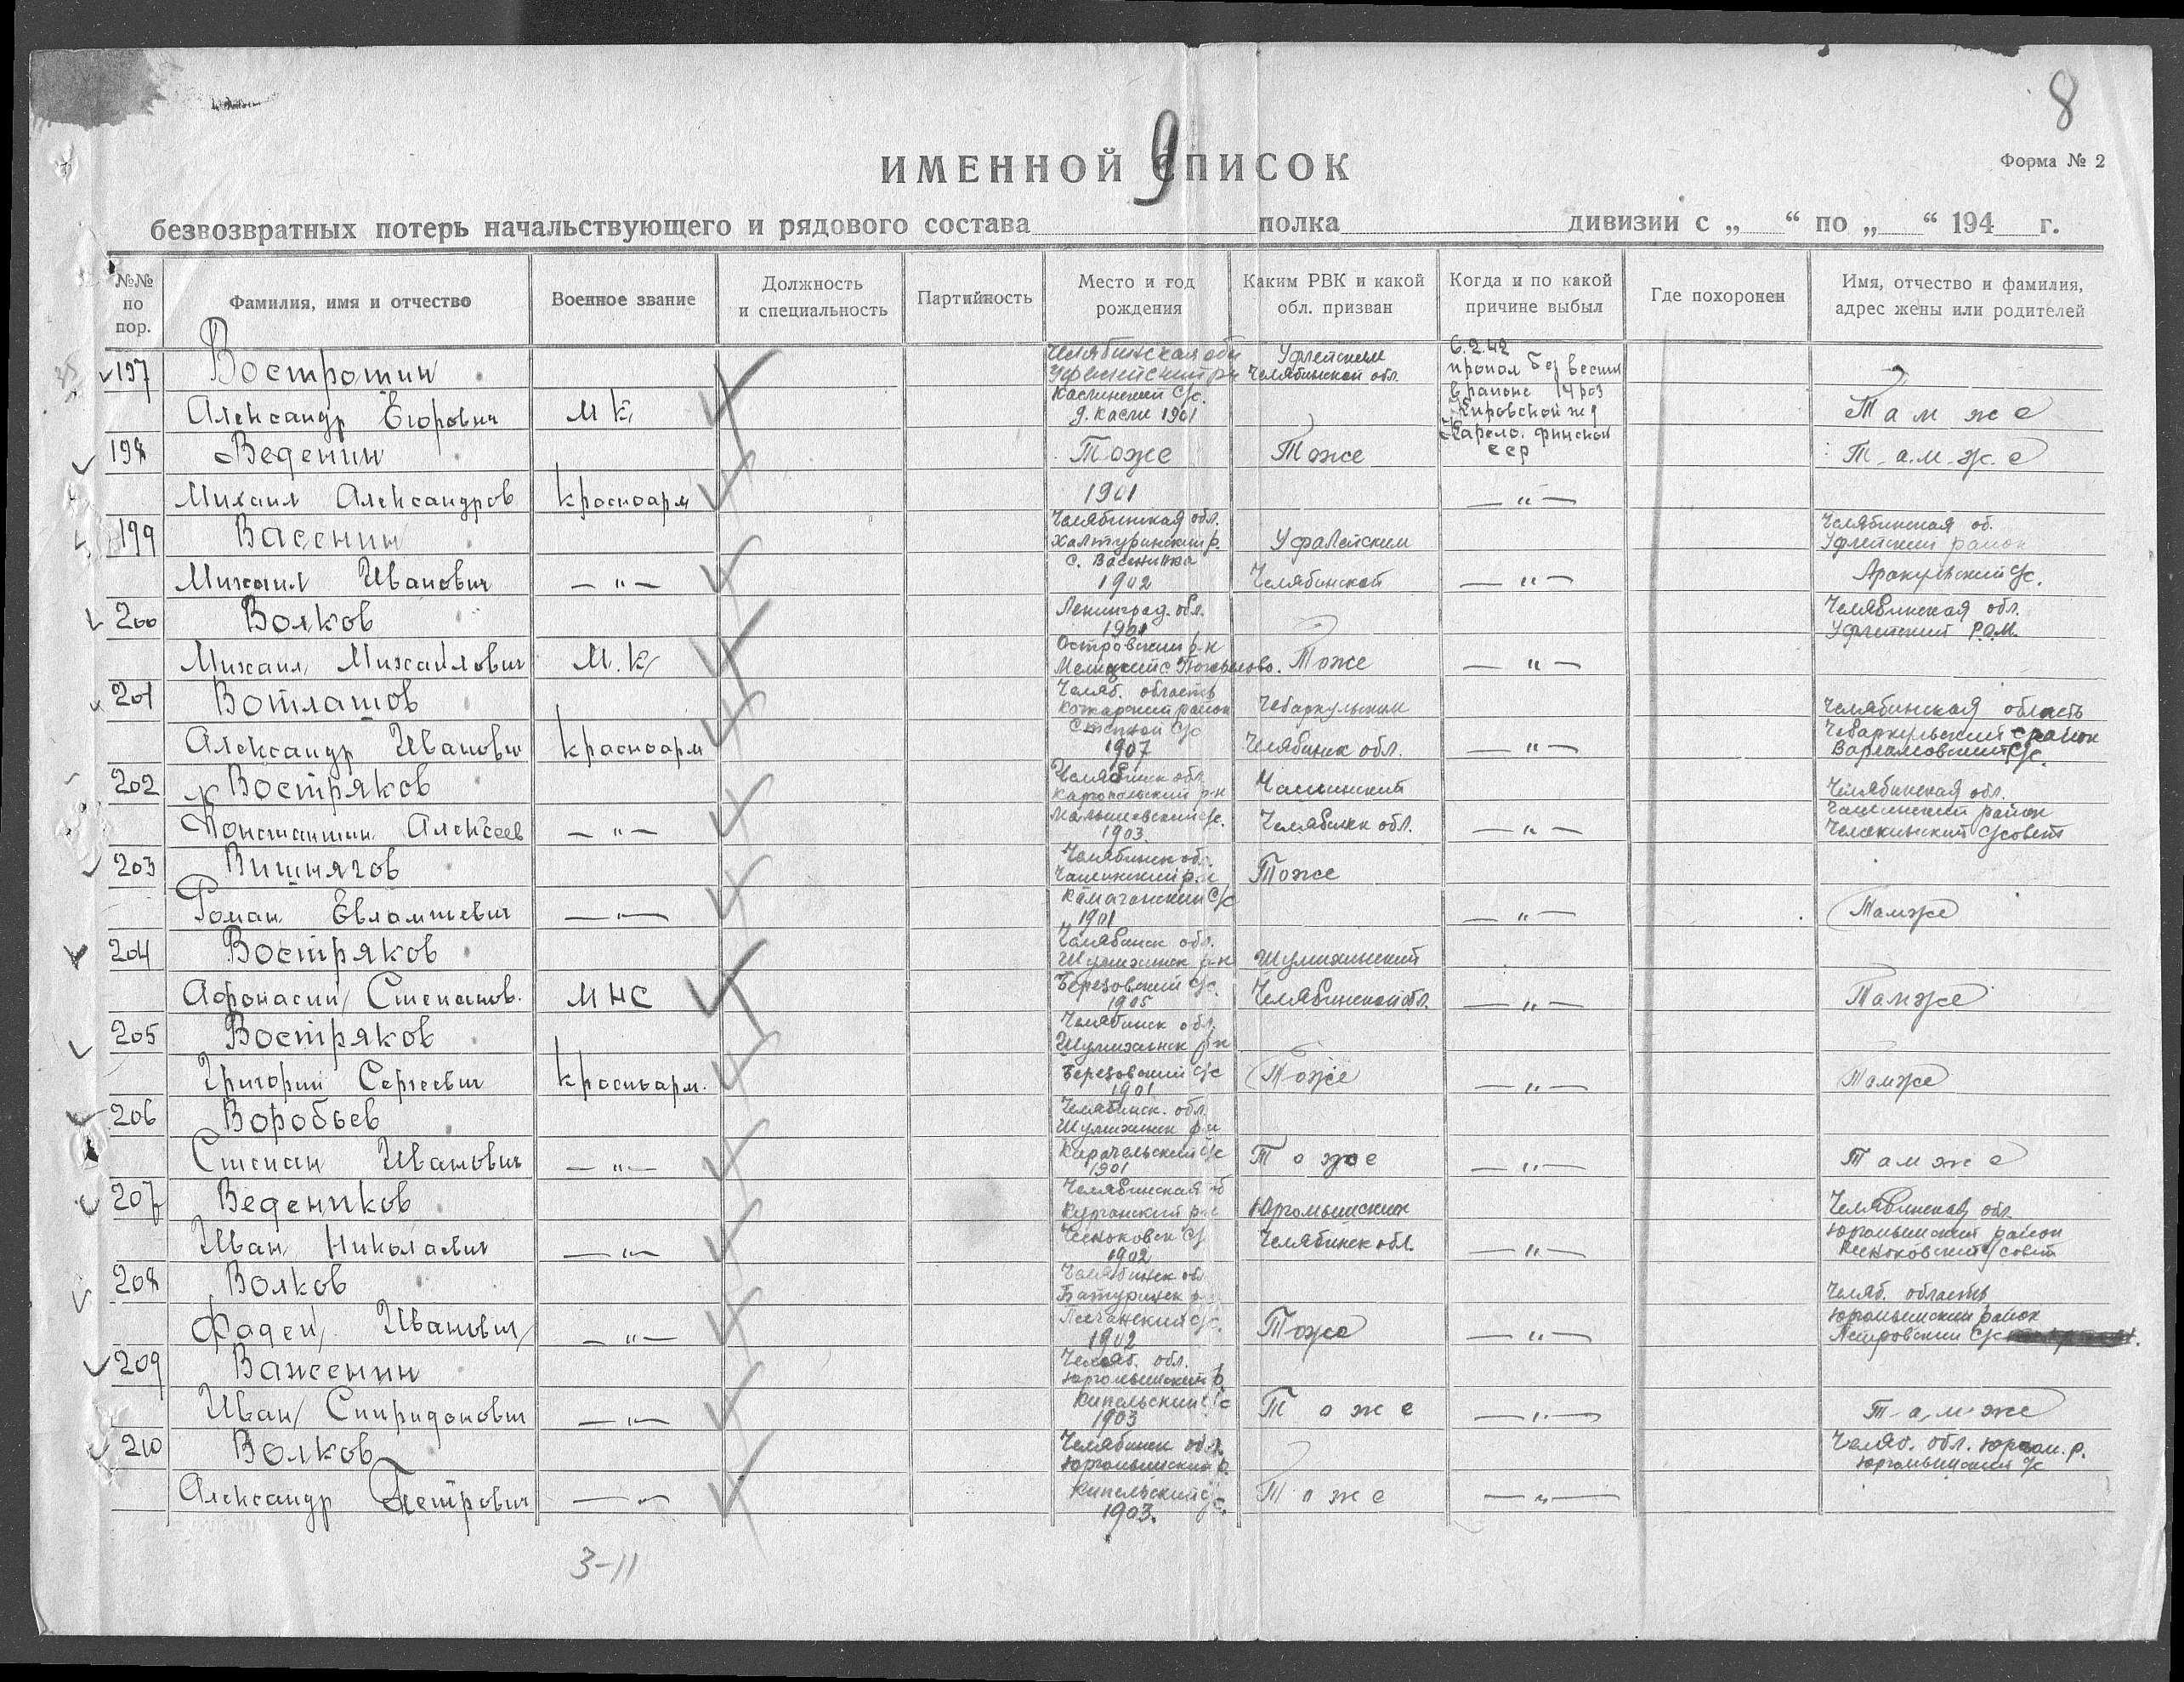 8
9
ИМЕННОЙ СПИСОК
Форма № 2
безвозвратных потерь начальствующего и рядового состава полка дивизии с „ “ по „ “ 194 г.
№№ по пор.
Фамилия, имя и отчество
Военное звание
Должность и специальность
Партийность
Место и год рождения
Каким РВК и какой обл. призван
Когда и по какой причине выбыл
Где похоронен
Имя, отчество и фамилия, адрес жены или родителей
197 Востротин
Александр Егорович МК
Челябинская обл
Уфалейский р-н
Каслинский с/с.
д. Касли 1901
Уфалейским
Челябинской обл.
6.2.42
пропал без вести
в районе 14 раз
Кировской жд
Карело. финской
сср
Там же
198 Веденин
Михаил Александров Красноарм
Тоже
1901
Тоже
— " —
Там же
199 Васенин
Михаил Иванович — " —
Челябинская обл.
Халтуринский р.
с. Васенинка
1902
Уфалейским
Челябинской
— " —
Челябинская об.
Уфлейский район
Аракульский с/с.
200 Волков
Михаил Михайлович М.К.
Ленинград. обл.
1901
Островский р-н
Тоже
— " —
Челябинская обл.
Уфлейский Р.О.М.
201 Вотлашов
Александр Иванович Красноарм
Челяб. область
Степной с/с
1907
Чебаркульским
Челябинск обл.
— " —
Челябинская область
Чебаркульский район
Варламовский с/с.
202 Востряков
Константин Алексеев — " —
Челябинск обл.
Каргопольский р-н
Малышевский с/с.
1903.
Чашинский
Челябинск обл.
— " —
Челябинская обл.
Чашинский район
203 Вишняков
Роман Евлампиевич — " —
Челябинск обл.
Чашинский р-н
1901
Тоже
— " —
Тамже
204 Востряков
Афонасий Степанов. МНС
Челябинск обл.
Шумихинск р-н
Березовский с/с.
1905
Шумихинский
Челябинской обл.
— " —
Тамже
205 Востряков
Григорий Сергеевич Красноарм.
Челябинск обл.
Шумихинск р-н
Березовский с/с
1901
Тоже
— " —
Тамже
206 Воробьев
Степан Иванович — " —
Челябинск. обл.
Шумихинск р-н
Карачельский с/с
1901
Тоже
— " —
Тамже
207 Веденников
Иван Николаевич — " —
Челябинская об
Курганский р-н
Чесноковск с/с
1902
Юргомышским
Челябинск обл.
— " —
Челябинская обл.
Юргомышский район
208 Волков
Фадей Иванович — " —
Челябинск обл
Батуринск р-н
Песчанский с/с.
1902
Тоже
— " —
Челяб. область
Юргомышский район
Петровский с/с
209 Важенин
Иван Спиридонович — " —
Челяб. обл.
Юргомышский р.
Кипельский с/с
1903
Тоже
— " —
Тамже
210 Волков
Александр Петрович — " —
Челябинск обл.
Юргомышский р.
Кипельский с/с.
1903.
Тоже
— " —
Челяб. обл. Юргом. р.
Юргомышский с/с
3-11